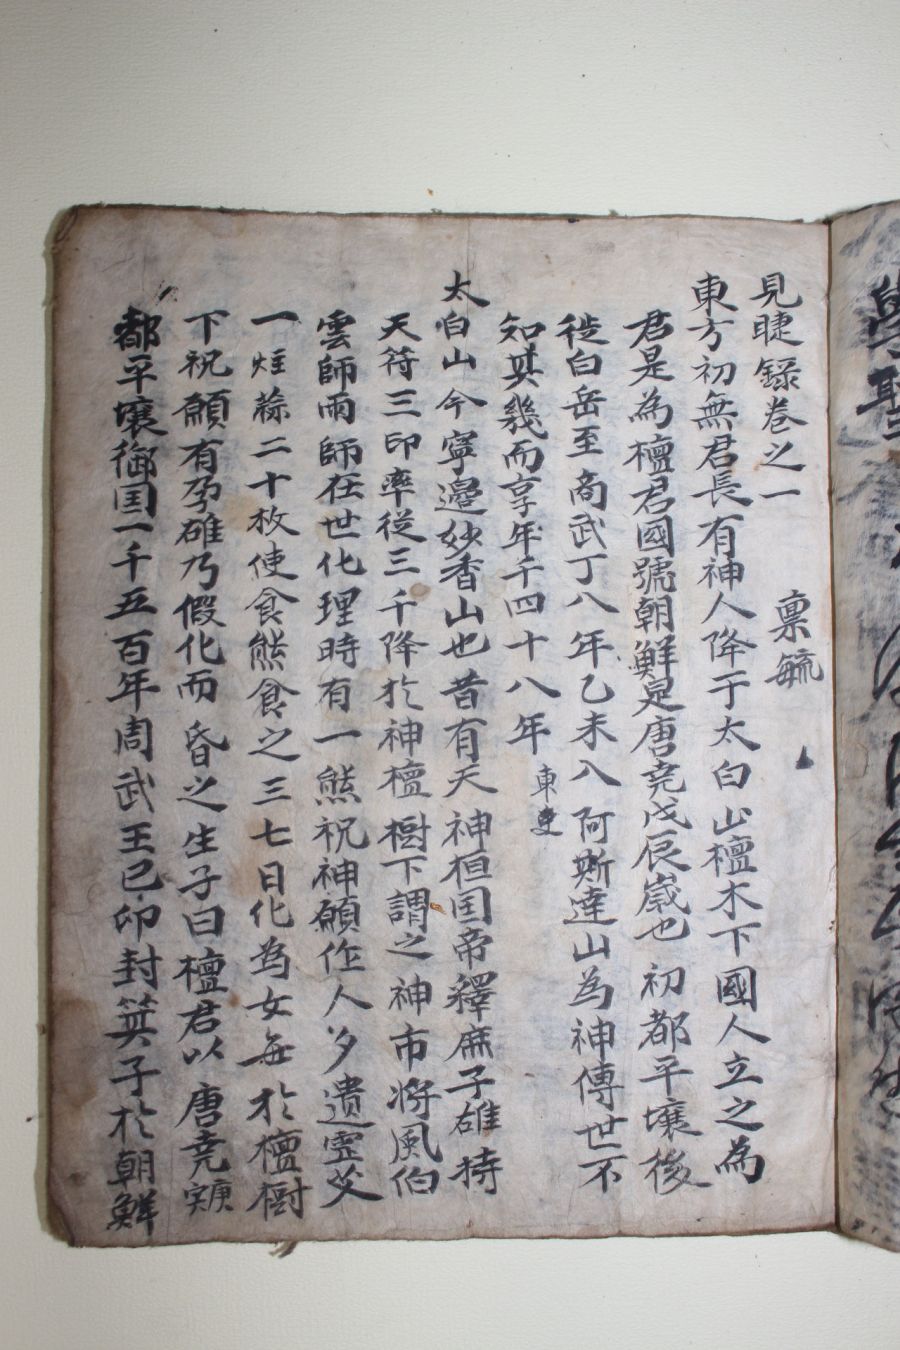 見睫錄卷之一 禀毓
東方初無君長有神人降于太白山檀木下國人立之為
君是為檀君國號朝鮮是唐堯戊辰歲也初都平壤後
徙白岳至商武丁八年乙未入阿斯達山為神傳世不
知其幾而享年千四十八年 東史
太白山今寧邊妙香山也昔有天神桓国帝釋庶子雄持
天符三印率從三千降於神檀樹下謂之神市将風伯
雲師雨師在世化理時有一熊祝神願作人身遺灵艾
一炷蒜二十枚使食熊食之三七日化為女每於檀樹
下祝願有孕雄乃假化而昏之生子曰檀君以唐堯庚寅
都平壤御国一千五百年周武王已卯封箕子於朝鮮